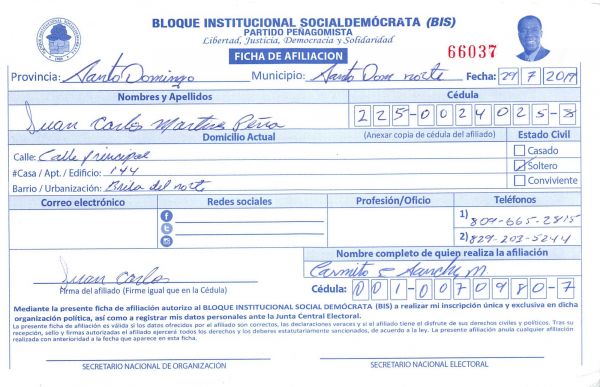 BLOQUE INSTITUCIONAL SOCIALDEMÓCRATA (BIS)
PARTIDO PEÑAGOMISTA
Libertad, Justicia, Democracia y Solidaridad
FICHA DE AFILIACION
66037
Provincia: Santo Domingo Municipio: Santo Dom norte Fecha: 29 7 2019
Nombres y Apellidos Cédula
Juan Carlos Martinez Peña 225-0024025-8
Domicilio Actual (Anexar copia de cédula del afiliado) Estado Civil
Calle: Calle principal Casado
#Casa / Apt. / Edificio: 144 Soltero
Barrio / Urbanización: Brisa del norte Conviviente
Correo electrónico Redes sociales Profesión/Oficio Teléfonos
1) 809-665-2815
2) 829-203-5244
Nombre completo de quien realiza la afiliación
Juan Carlos Carmito Sanchez M
Firma del afiliado (Firme igual que en la Cédula) Cédula: 001-0070980-7
Mediante la presente ficha de afiliación autorizo al BLOQUE INSTITUCIONAL SOCIAL DEMÓCRATA (BIS) a realizar mi inscripción única y exclusiva en dicha
organización política, así como a registrar mis datos personales ante la Junta Central Electoral.
La presente ficha de afiliación es válida si los datos ofrecidos por el afiliado son correctos, las declaraciones veraces y si el afiliado tiene el disfrute de sus derechos civiles y políticos. Tras su
recepción, sello y firmas autorizadas el afiliado ejercerá todos los derechos y los deberes estatutariamente sancionados, de acuerdo a la ley. La presente afiliación anula cualquier afiliación
realizada con anterioridad a la fecha que aparece en esta ficha.
SECRETARIO NACIONAL DE ORGANIZACIÓN SECRETARIO NACIONAL ELECTORAL